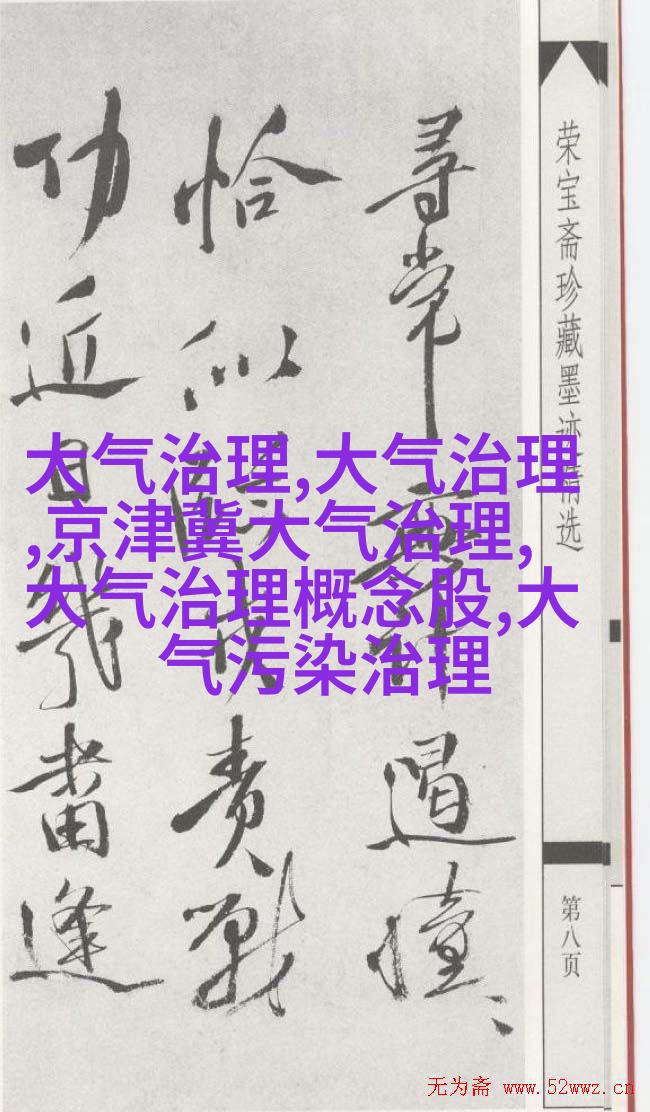 荣宝斋珍藏墨迹精选
第八页
尋常遏憧、、
恰似責戰
功近日幾番逢
大气治理,大气治理
,京津冀大气治理,
大气治理概念股,大
气污染治理
无为斋 www.52wwz.cn